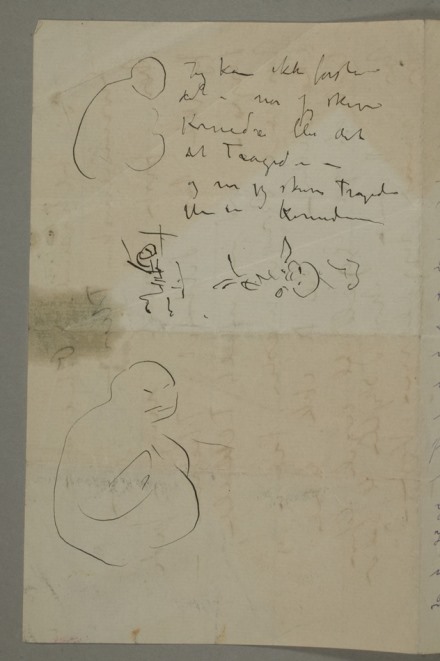 Jeg kan ikke forstaa
det – naar jeg skriver
Komedie blir det
det Tragedie –
og naar jeg skriver Tragedie
blir det Komedie